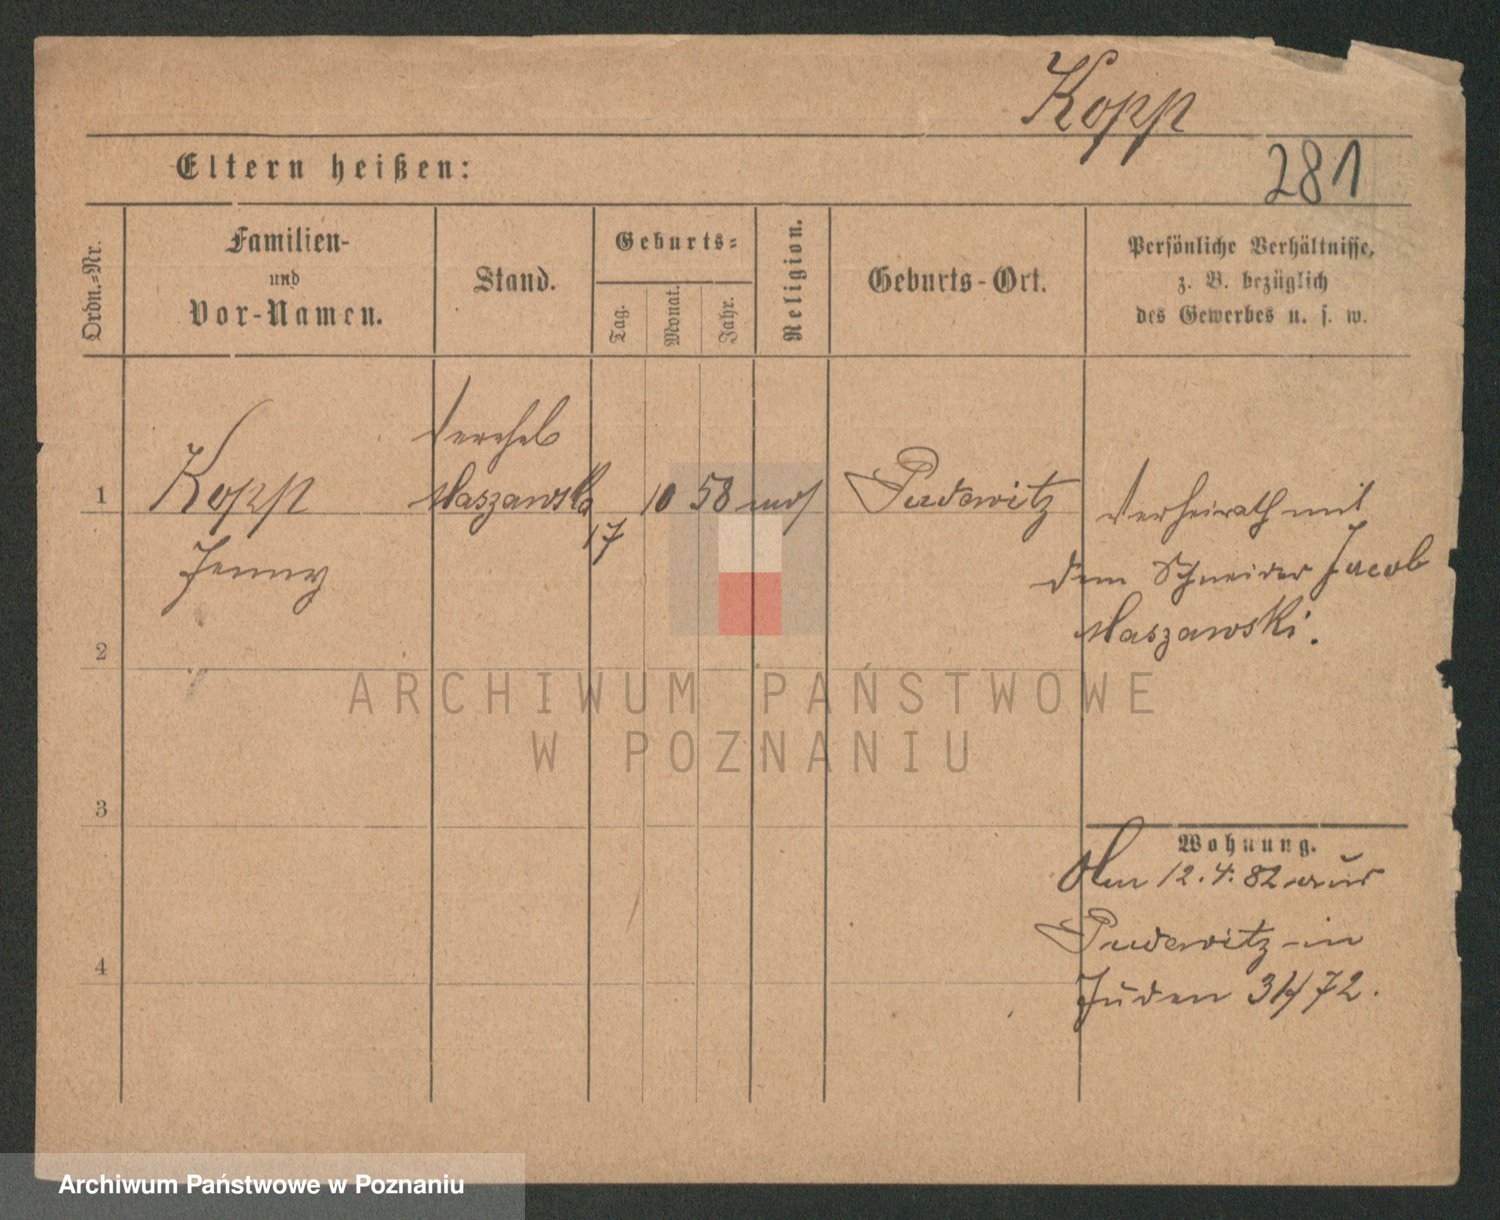 Kopp
Eltern heißen:
281
Ordn.-Nr.
Familien-
und
Vor-Namen.
Stand.
Geburts-
Tag.
Monat.
Jahr.
Religion.
Geburts-Ort.
Persönliche Verhältnisse,
z. B. bezüglich
des Gewerbes u. s. w.
1
Kopp
Jenny
Maszawska
17
10
58
mos
Pudewitz
Verheirath mit
dem Schneider Jacob
Maszawski.
2
3
4
ARCHIWUM PAŃSTWOWE
W POZNANIU
Wohnung.
Am 12.4.82 aus
Pudewitz in
Juden 31/72.
Archiwum Państwowe w Poznaniu